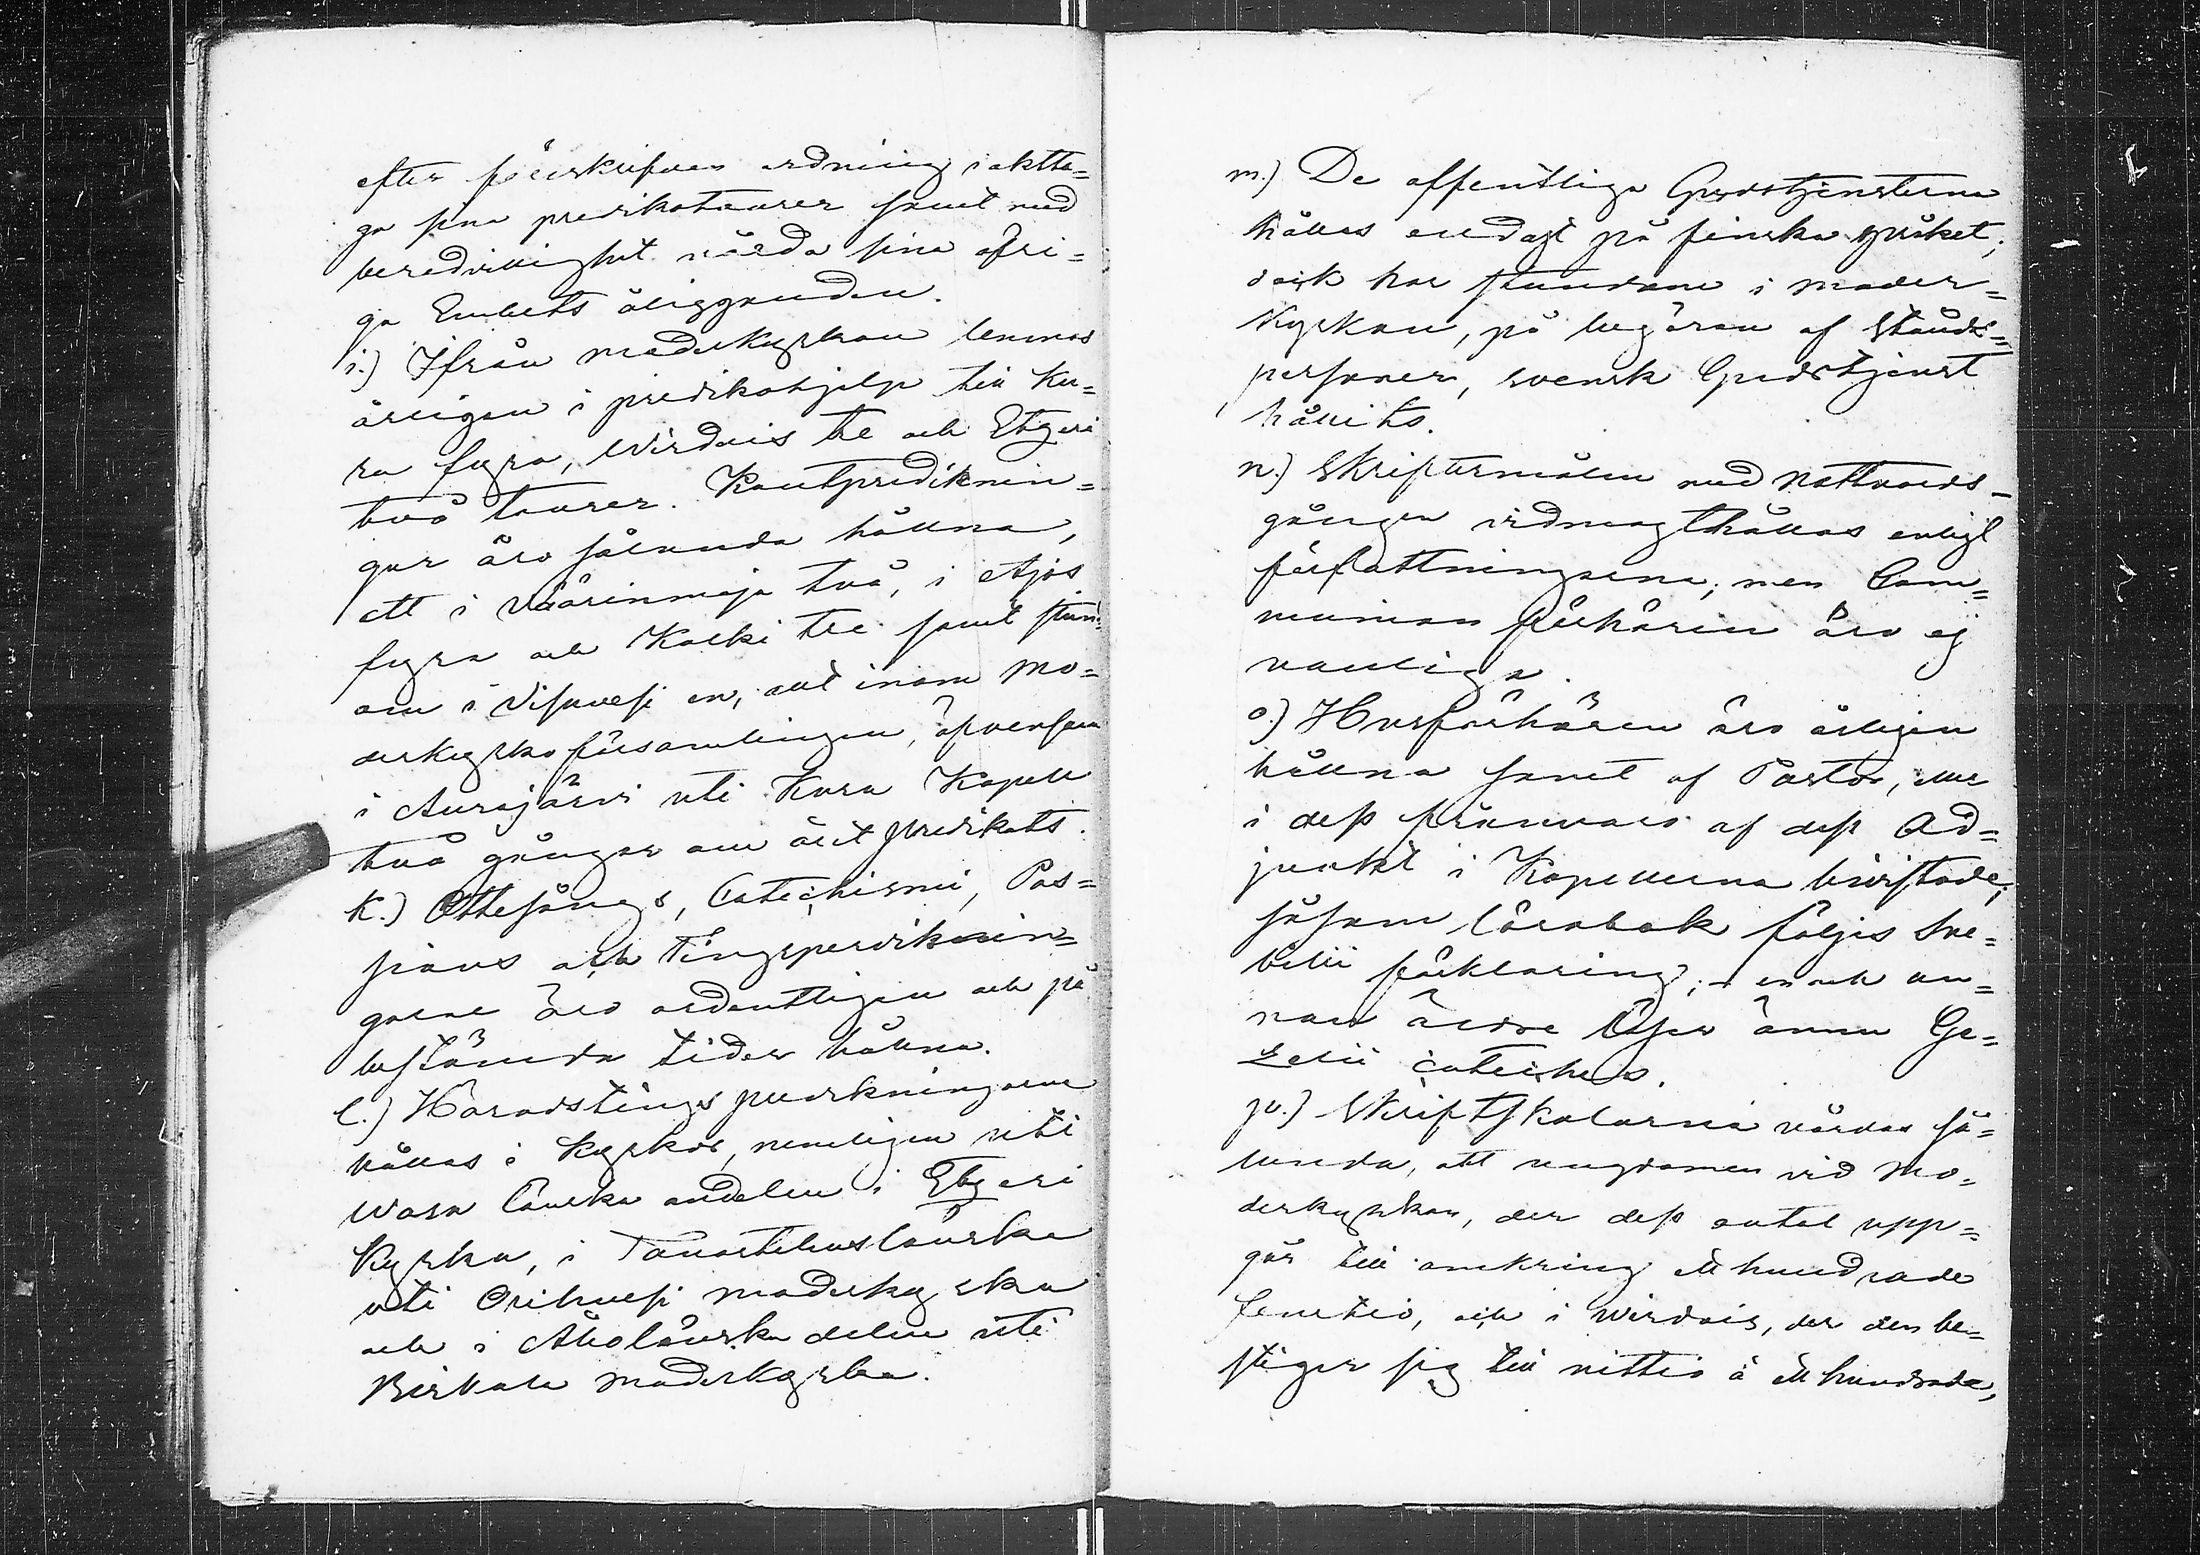 efter föreskrifven ordning iaktta=
ga sina predikotourer samt med
beredvillighet vårda sina öfri=
ga Embets åligganden.
i.) Ifrån moderkyrkan lemnas
årligen i predikohjelp till Ku=
ru fyra, Wirdois tre och Etzeri
två tourer. Kautprediknin=
gar äro sålunda hållna,
ett i Väärinmaja två, i Äijös
fyra och Kolki tre samt stun=
om i Visuvesi en, allt inom Mo=
derkyrkoförsamlingen, äfvensom
i Aurajärvi uti Kuru Kapell
två gånger om året predikats.
k.) Ottesångs, Catechismi, Pas=
sions och Tingsprediknin=
garne äro ordentligen och på
bestämda tider hållna.
l.) Häradstings predikningarne
hållas i Kyrkor, nemligen uti
Wasa Länska andelen i Etzeri
Kyrka, i Tavastehuslänska
uti Orihvesi moderkyrka
och i Åbolänska delen uti
Birkala moderkyrka.
m.) De offentliga Gudstjensterna
hållas endast på finska språket,
dock har stundom i moder=
kyrkan, på begäran af Stånds=
personer, svensk Gudstjenst
hållits.
n.) Skriftermålen med nattvards-
gången vidmagthållas enligt
författningarne; men Com=
munion förhören äro ej
vanliga.
o.) Husförhören äro årligen
hållna samt af Pastor, eller
i dess frånvaro af dess Ad=
junkt i Kapellerna bivistade;
såsom lärobok följes Sve=
bilii förklaring; en och an=
nan äldre läser ännu Ge=
zelii catechес.
p.) Skriftskolorna vårdas så=
lunda, att ungdomen vid Mo=
derkyrkan, der dess antal upp=
går till omkring ett hundrade
femtio, och i Wirdois, der den be=
stiger sig till nittio à ett hundrade,